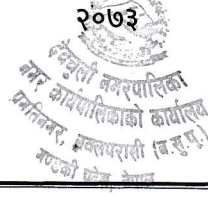 २०७३
देवचुली नगरपालिका
नगर कार्यपालिकाको कार्यालय
प्रगतिनगर, नवलपरासी (ब.सु.पू.)
गण्डकी प्रदेश, नेपाल